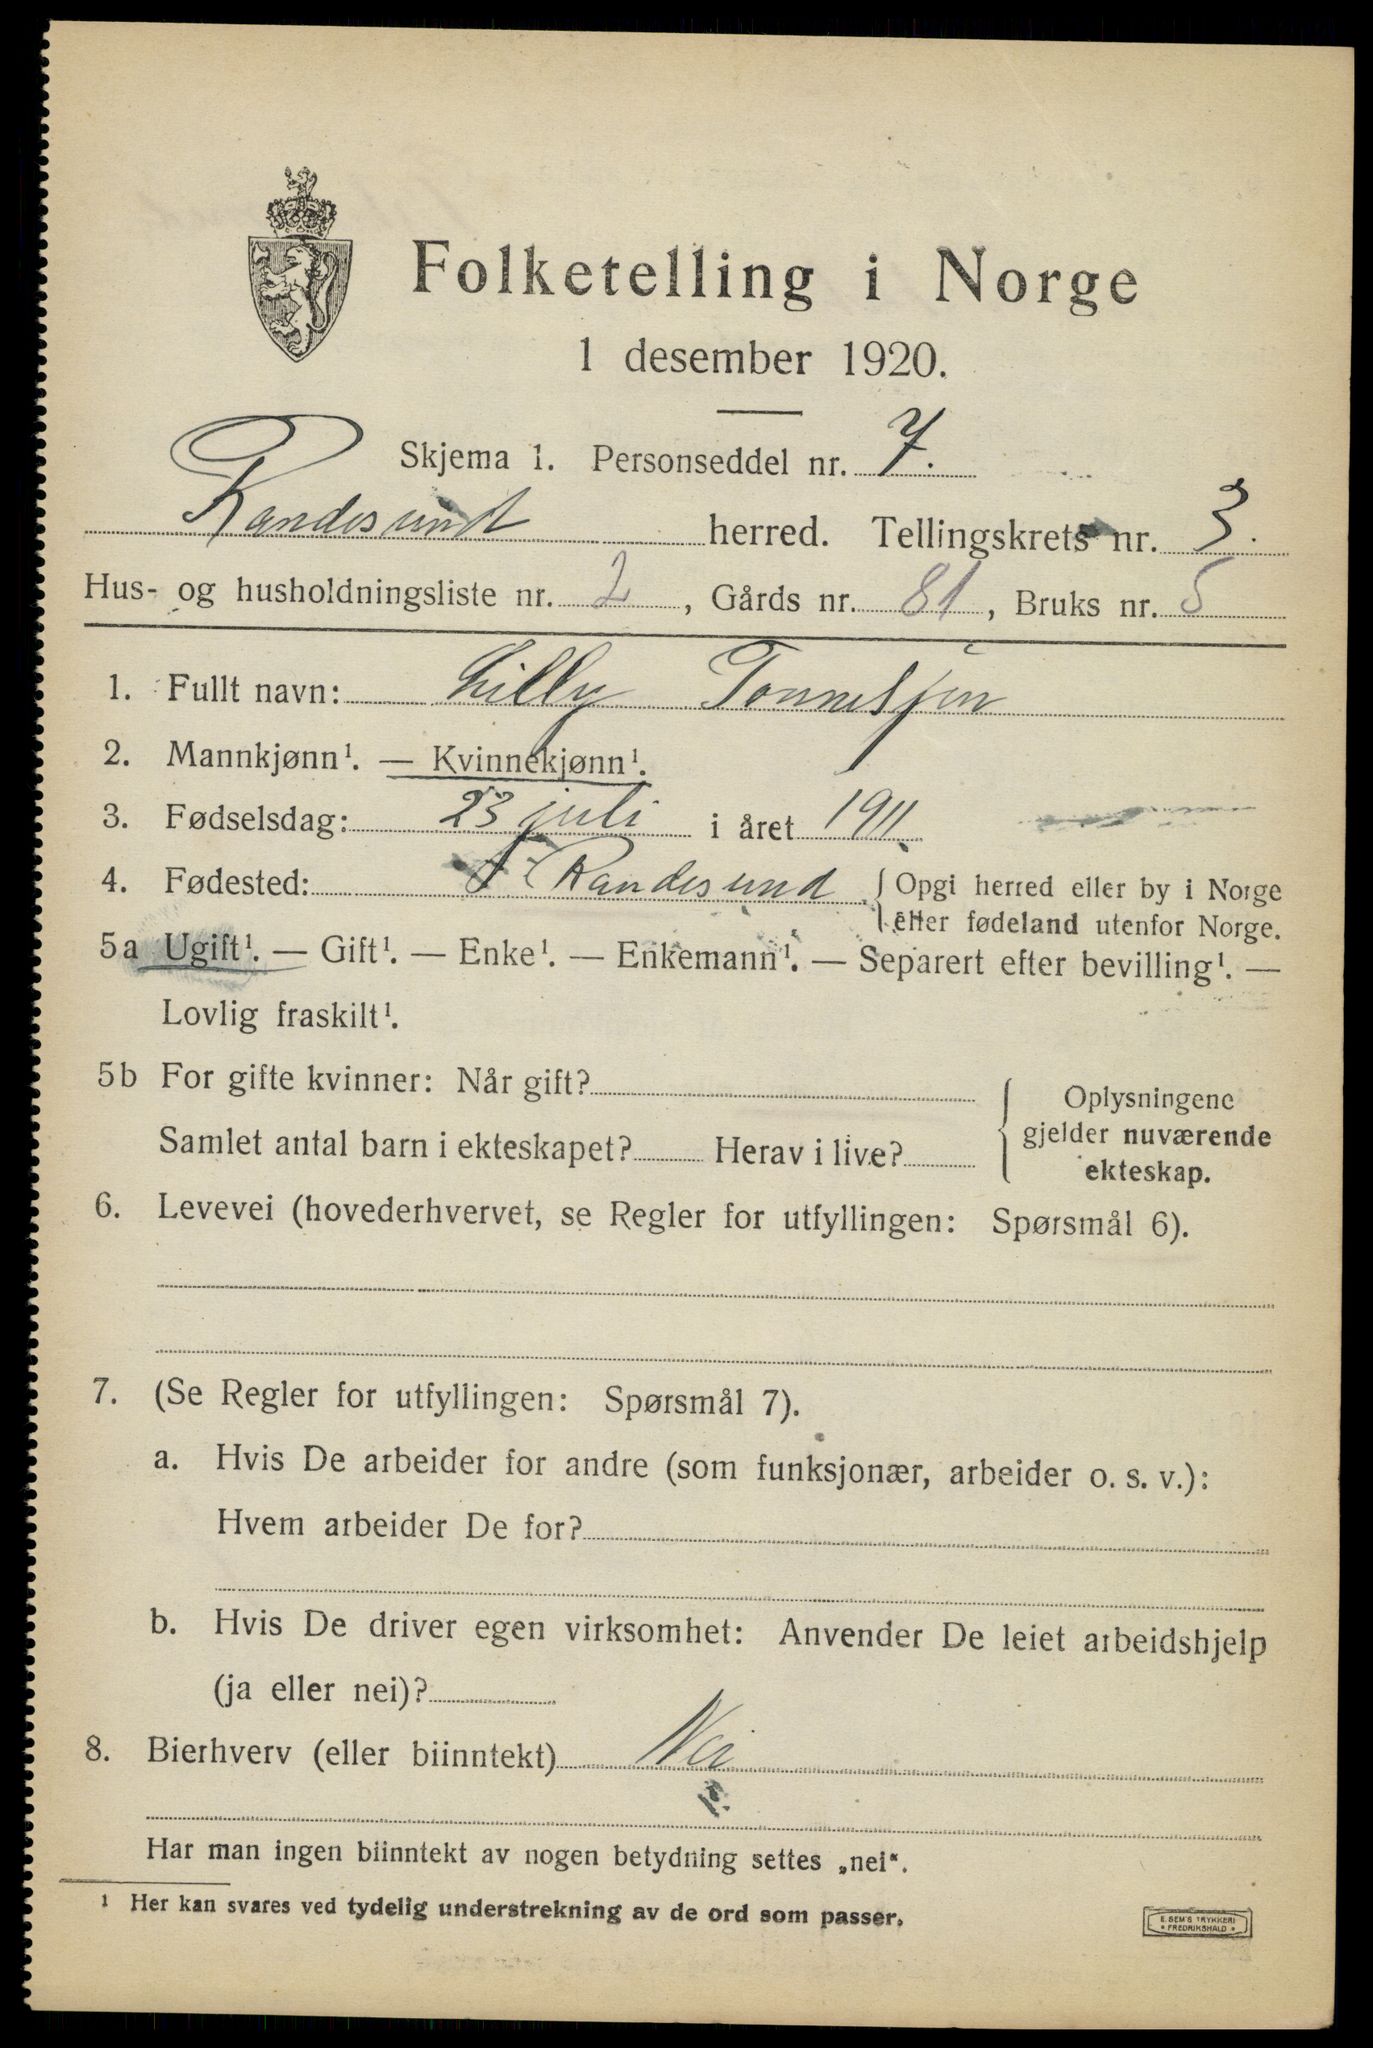 Folketelling i Norge
1 desember 1920.
Skjema 1. Personseddel nr. 7.
Randesund herred. Tellingskrets nr. 3.
Hus- og husholdningsliste nr. 2, Gårds nr. 81, Bruks nr. 5
1. Fullt navn: Lilly Tønnesjen
2. Mannkjønn¹. — Kvinnekjønn¹.
3. Fødselsdag: 23 juli i året 1911
4. Fødested: Randesund { Opgi herred eller by i Norge
eller fødeland utenfor Norge.
5a Ugift¹. — Gift¹. — Enke¹. — Enkemann¹. — Separert efter bevilling¹. —
Lovlig fraskilt¹.
5b For gifte kvinner: Når gift?
Samlet antal barn i ekteskapet? Herav i live?
{ Oplysningene
gjelder nuværende
ekteskap.
6. Levevei (hovederhvervet, se Regler for utfyllingen: Spørsmål 6).
7. (Se Regler for utfyllingen: Spørsmål 7).
a. Hvis De arbeider for andre (som funksjonær, arbeider o. s. v.):
Hvem arbeider De for?
b. Hvis De driver egen virksomhet: Anvender De leiet arbeidshjelp
(ja eller nei)?
8. Bierhverv (eller biinntekt) Nei
Har man ingen biinntekt av nogen betydning settes „nei".
¹ Her kan svares ved tydelig understrekning av de ord som passer.
E. SEM'S TRYKKERI
* FREDRIKSHALD *